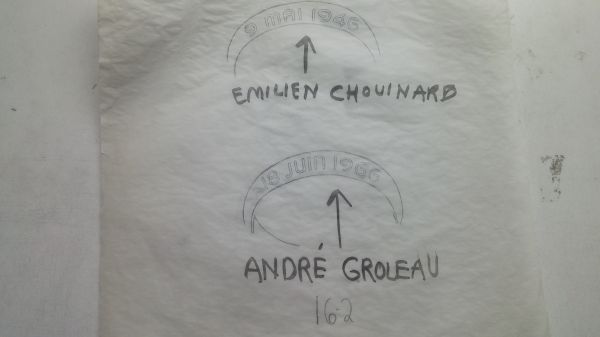 9 MAI 1946
EMILIEN CHOUINARD
18 JUIN 1966
ANDRÉ GROLEAU
16-2